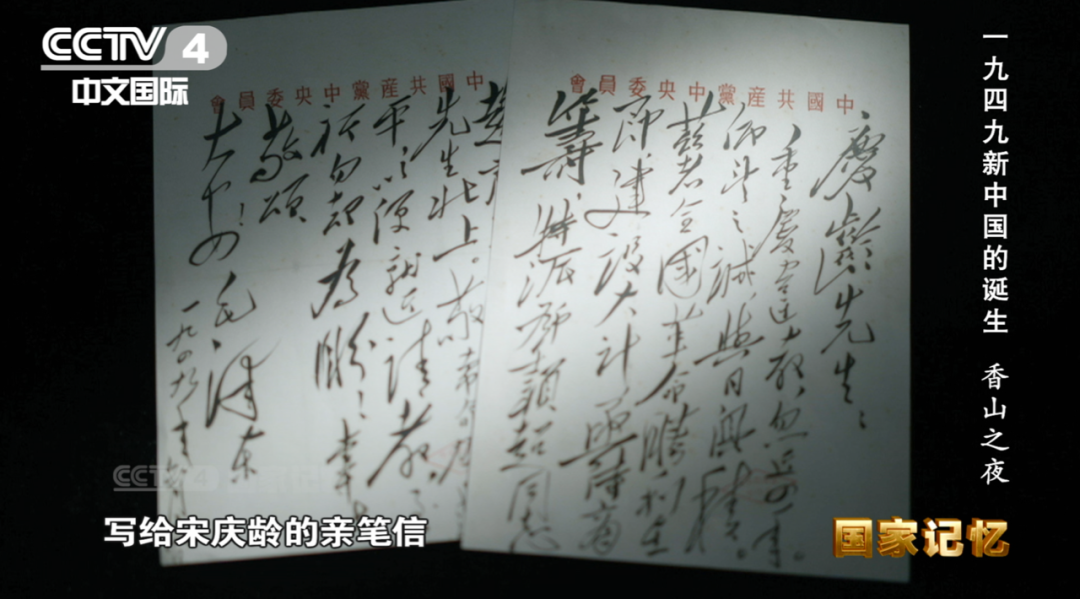 CCTV 4
中文国际
一九四九新中国的诞生 香山之夜
中國共産黨中央委員會
慶齡先生：
重慶違教，忽近四年。
仰望之誠，與日俱積。
茲者全國革命勝利在
即，建設大計，亟待商
籌，特派鄧穎超同志
中國共産黨中央委員會
先生北上。敬希
平，以便就近請教，
祈勿却為盼！專
敬頌
大安！
毛澤東
一九四九年六月
CCTV 4
写给宋庆龄的亲笔信
国家记忆